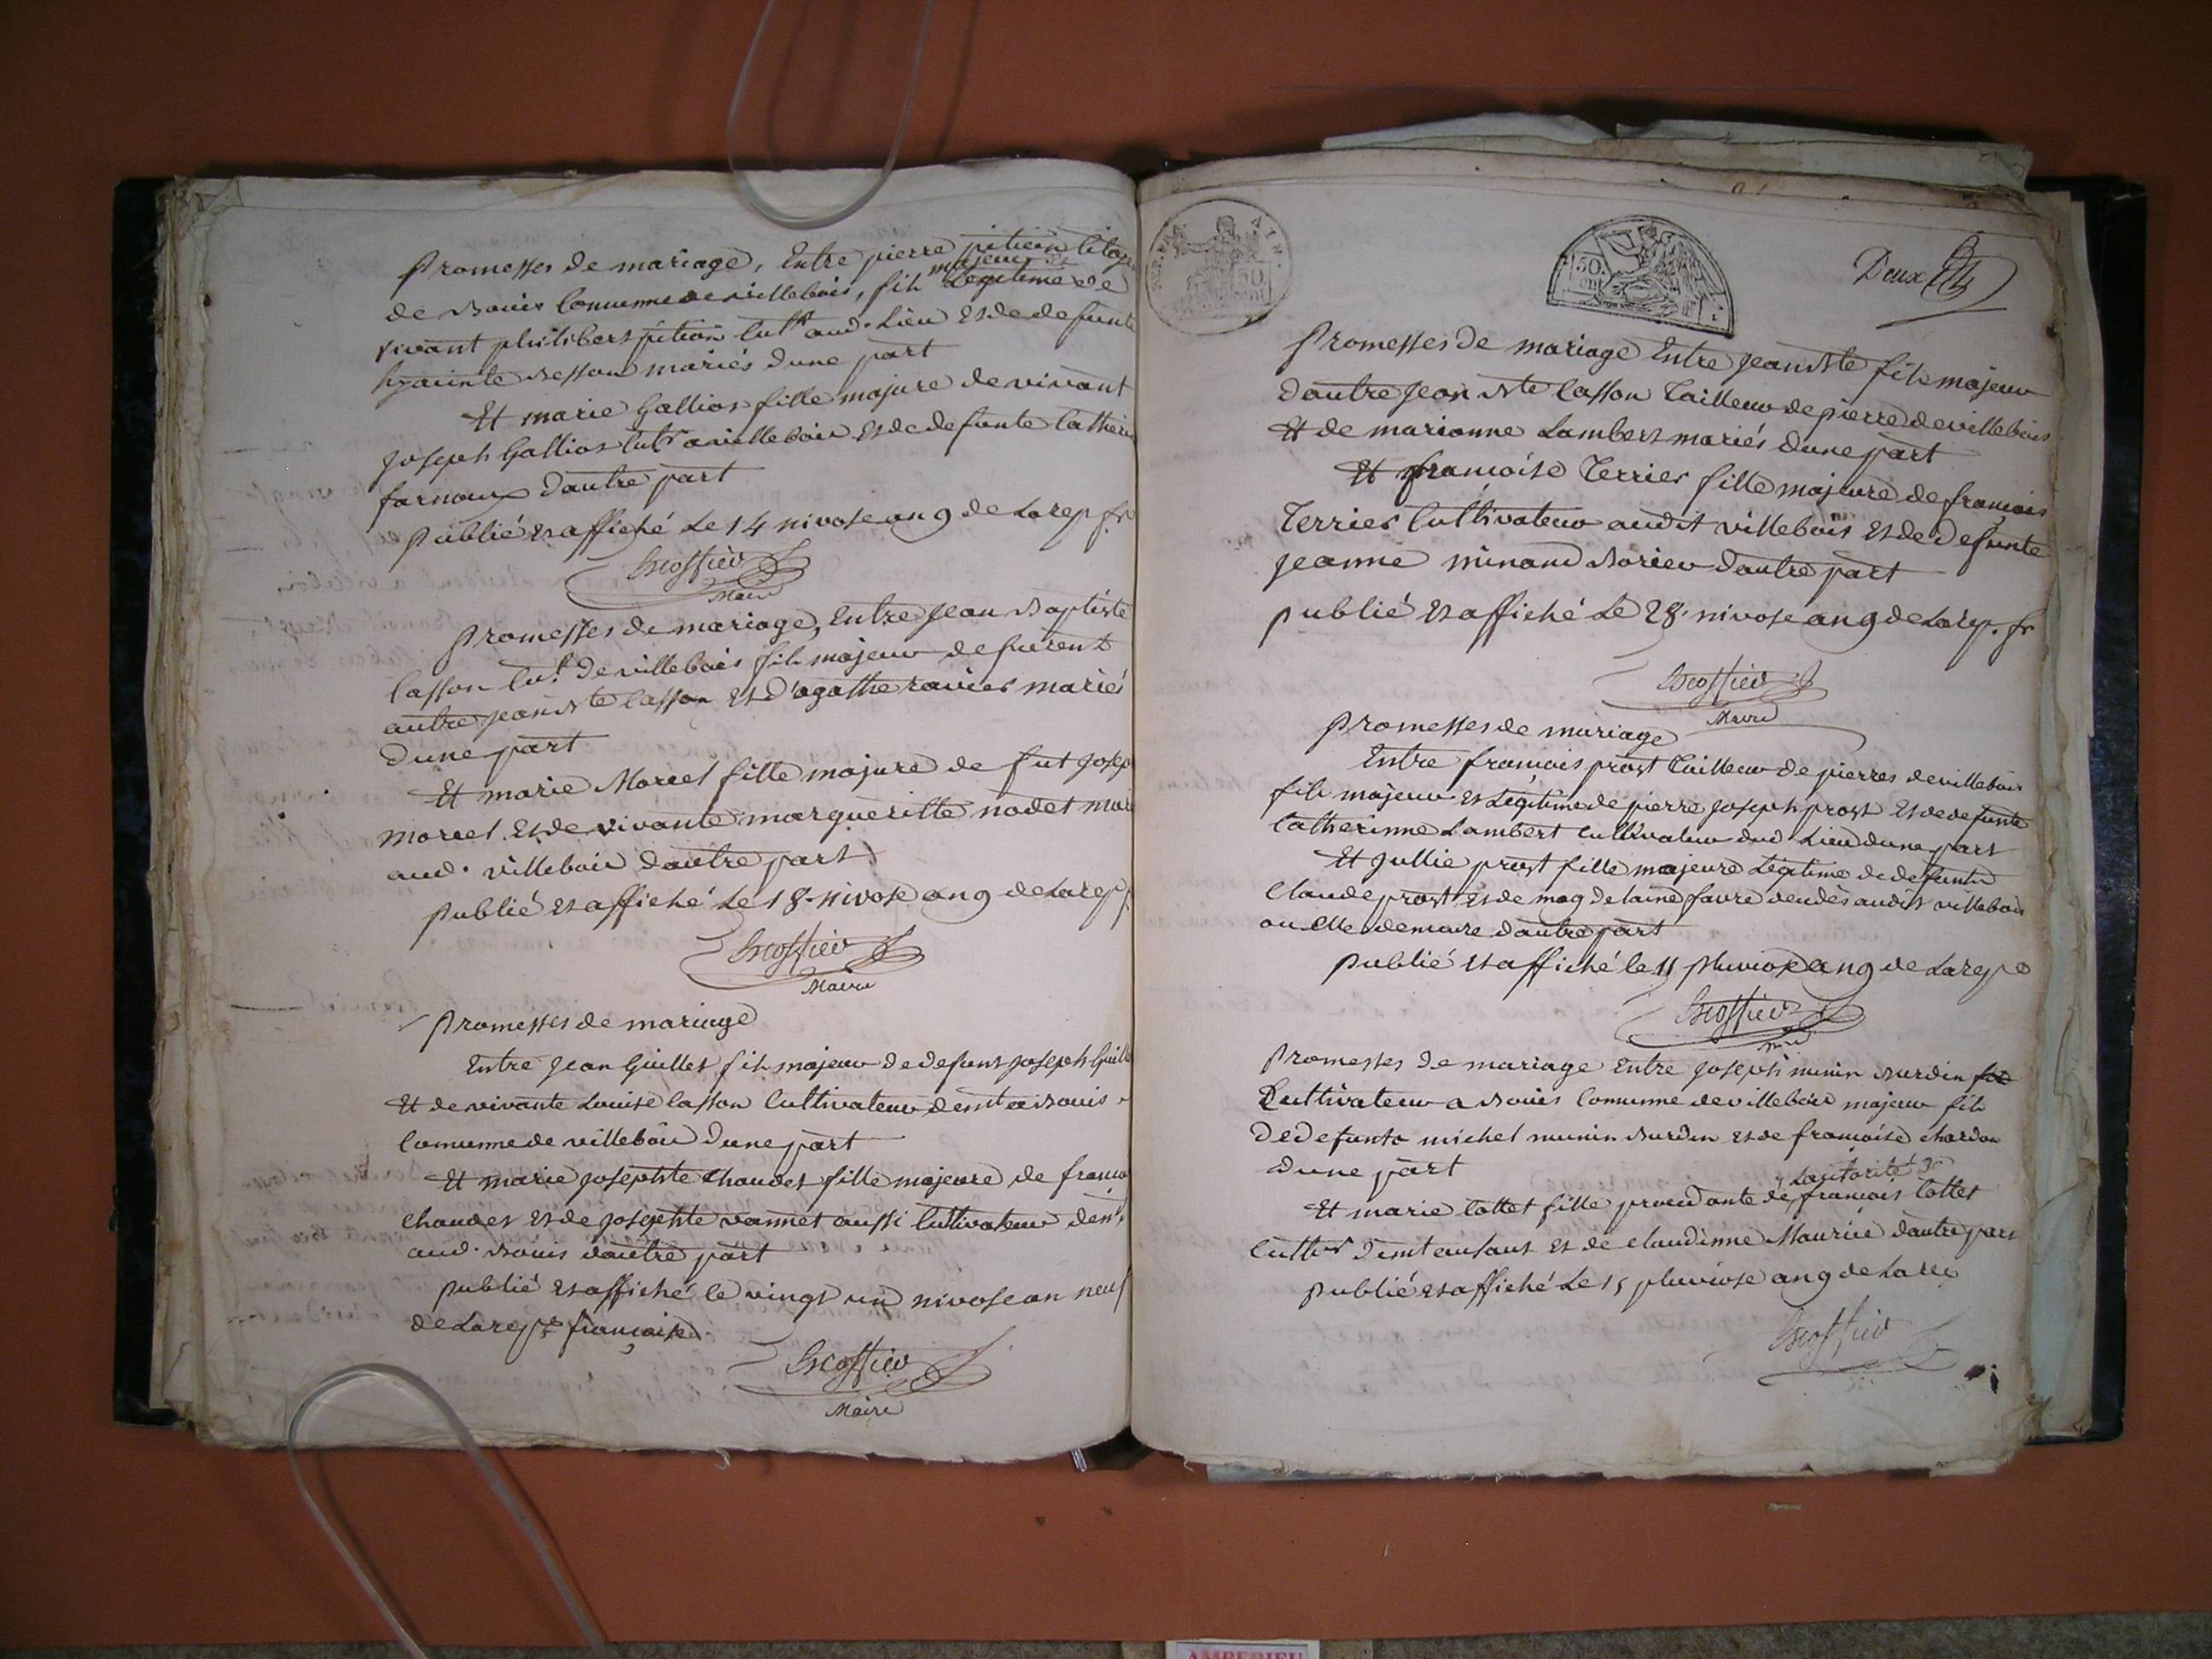 Promesses de mariage, Entre pierre pition
de Bouis Commune de villebois, fils majeur et Legitime de
vivant philibert pition cult.r aud. Lieu Et de defunte
hyacinte Besson mariés d'une part
Et marie Gallios fille majure de vivant
joseph Gallios cult.r a villebois Et de defunte Catheri
farnoux d'autre part
publié Et affiché Le 14 nivose an 9 de La rep. fr
Maire
promesses de mariage, Entre jean Baptiste
Casson cu.r de villebois fils majeur de furent
autre jean Bte Casson Et d'agathe ravier mariés
d'une part
Et marie Morel fille majure de fut josep
morel Et de vivante margueritte nodet mari
aud. villebois d'autre part
publié Et affiché Le 18 nivose an 9 de La rep
Maire
promesses de mariage
Entre jean Guillet fils majeur de defunt joseph Guill
Et de vivante Louise Casson Cultivateur demt a Bouis
Commune de villebois d'une part
Et marie josephte Chaudet fille majeure de franco
chaudet Et de josephte vannet aussi Cultivateur demt
aud. Bouis d'autre part
publié Et affiché le vingt un nivose an neuf
de La rep.e française.
Maire
AIN
50
50
Deux
Promesses de mariage Entre jean Bte fils majeur
d'autre jean Bte Casson Tailleur de pierre de villebois
Et de marianne Lambert mariés d'une part
Et françoise Terrier fille majeure de françois
Terrier Cultivateur audit villebois Et de defunte
jeanne minand Borieu d'autre part
publié Et affiché Le 28 nivose an 9 de La rep. fr
Maire
promesses de mariage
Entre françois prost Tailleur de pierres de villebois
fils majeur Et Légitime de pierre joseph prost Et de defunte
Catherinne Lambert Cultivateur dud Lieu d'une part
Et jullie prost fille majeure Légitime de defunt
Claude prost Et de magdelaine favre audit villebois
ou elle demeure d'autre part
publié Et affiché le 11 pluviose an 9 de La rep
Promesses de mariage Entre joseph minin Burdin
Cultivateur a Bouis Commune de villebois majeur fils
de defunto michel munin Burdin Et de françoise chardon
d'une part
Lautorité de
Et marie Cottet fille procedante de françois Cottet
Cult.r demt au Et de claudinne Maurice d'autre part
publié Et affiché Le 15 pluviose an 9 de La rep
AMBERIEU